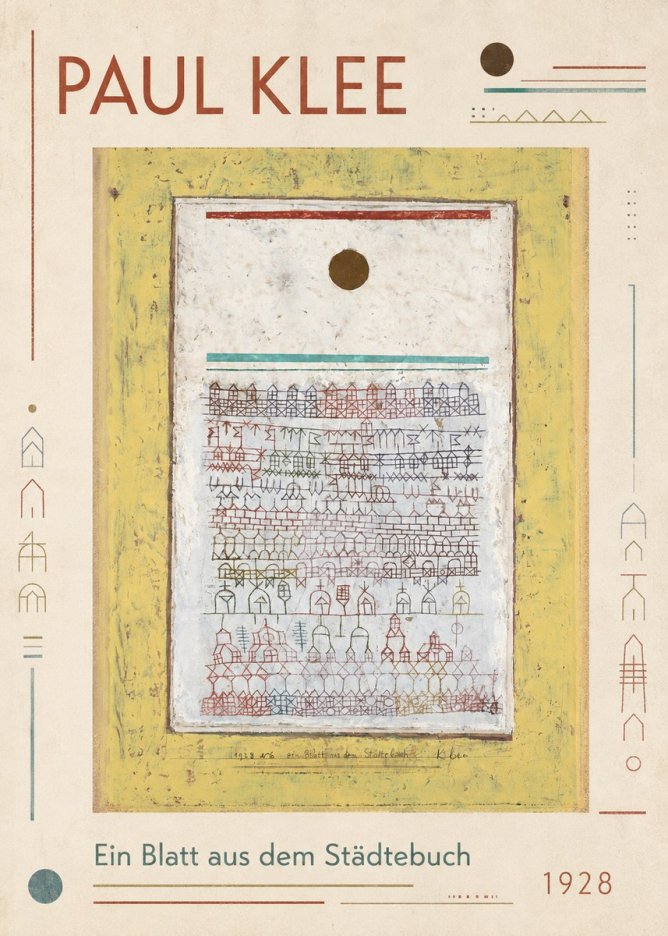 PAUL KLEE
1928 N 6 ein Blatt aus dem Städtebuch Klee
Ein Blatt aus dem Städtebuch
1928